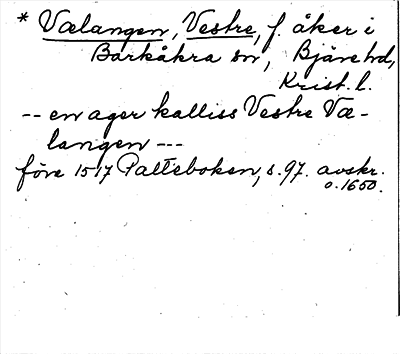 * Vælangen, Vestre, f. åker i
Barkåkra sn, Bjäre hd,
Krist. l.
-- en ager kalliss Vestre Væ-
langen ---
före 1517 Palteboken, s. 97. avskr.
o. 1650.